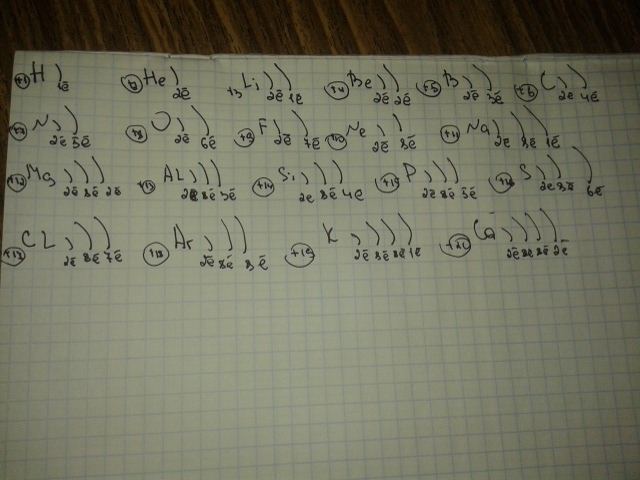 +1 H 1ē +2 He 2ē +3 Li 2ē 1ē +4 Be 2ē 2ē +5 B 2ē 3ē +6 C 2e 4ē
+7 N 2ē 5ē +8 O 2ē 6ē +9 F 2ē 7ē +10 Ne 2ē 8ē +11 Na 2e 8e 1ē
+12 Mg 2ē 8ē 2ē +13 AL 2ē 8ē 3ē +14 Si 2e 8e 4e +15 P 2e 8e 5ē +16 S 2e 8ē 6ē
+17 CL 2ē 8ē 7ē +18 Ar 2ē 8ē 8ē +19 K 2ē 8ē 8ē 1ē +20 Ca 2ē 8ē 8ē 2ē